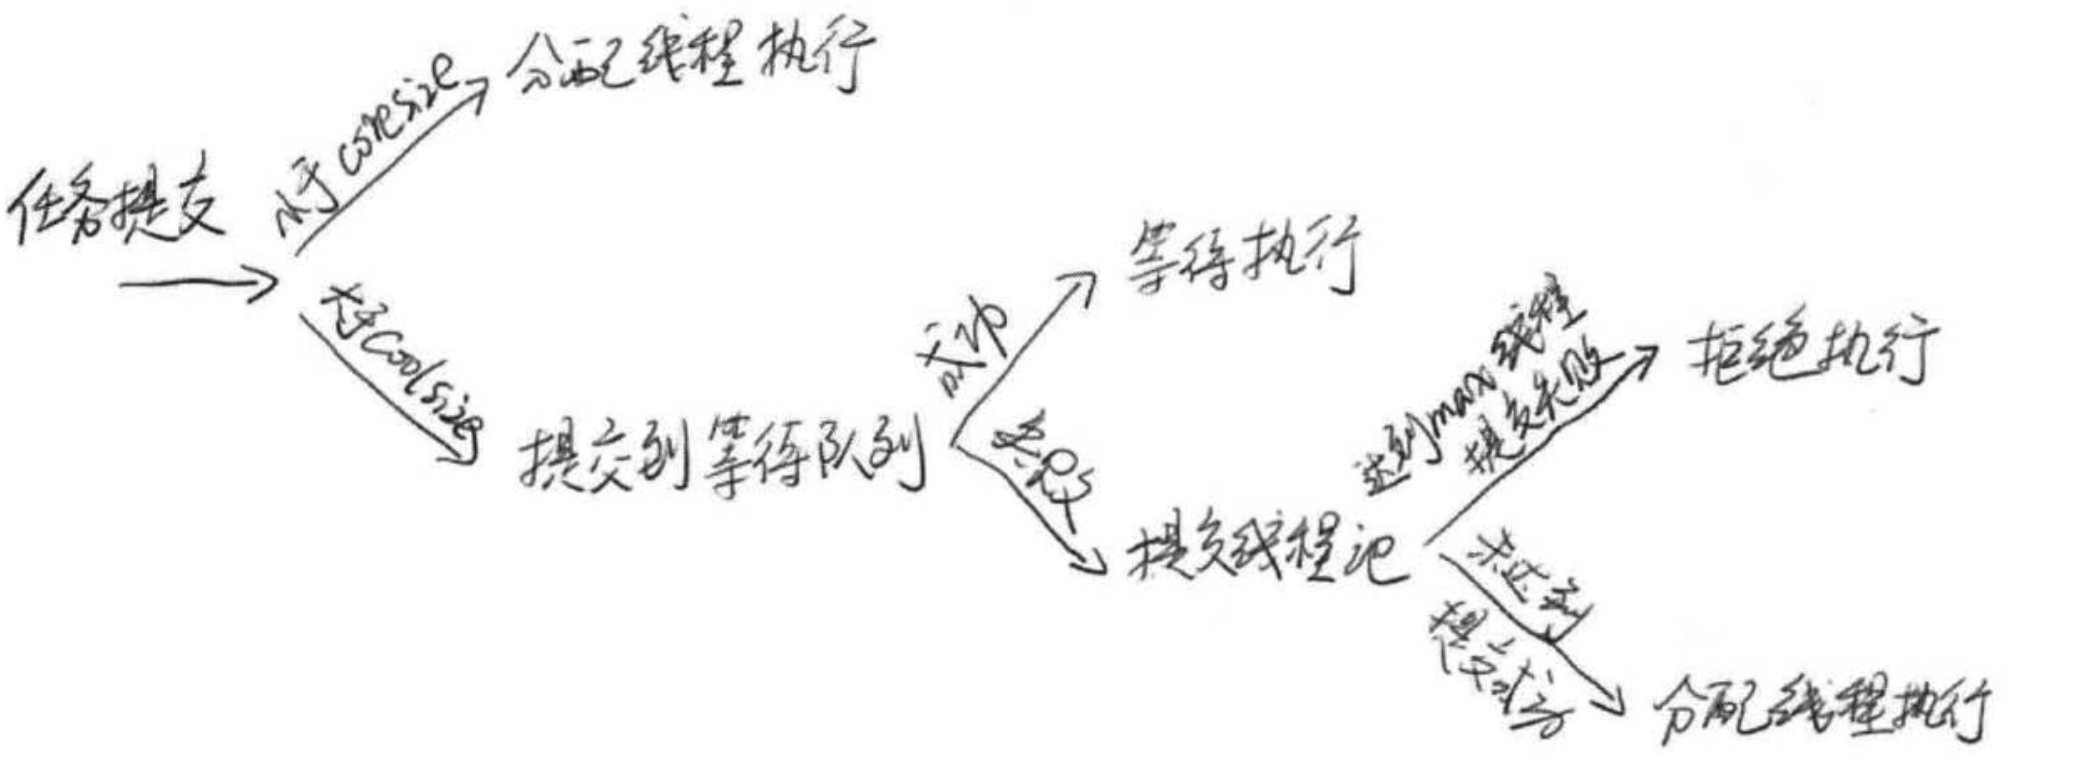 任务提交
小于coresize
分配线程执行
大于Coolsize
提交到等待队列
成功
等待执行
失败
提交线程池
达到max线程
提交失败
拒绝执行
未达到
提交成功
分配线程执行